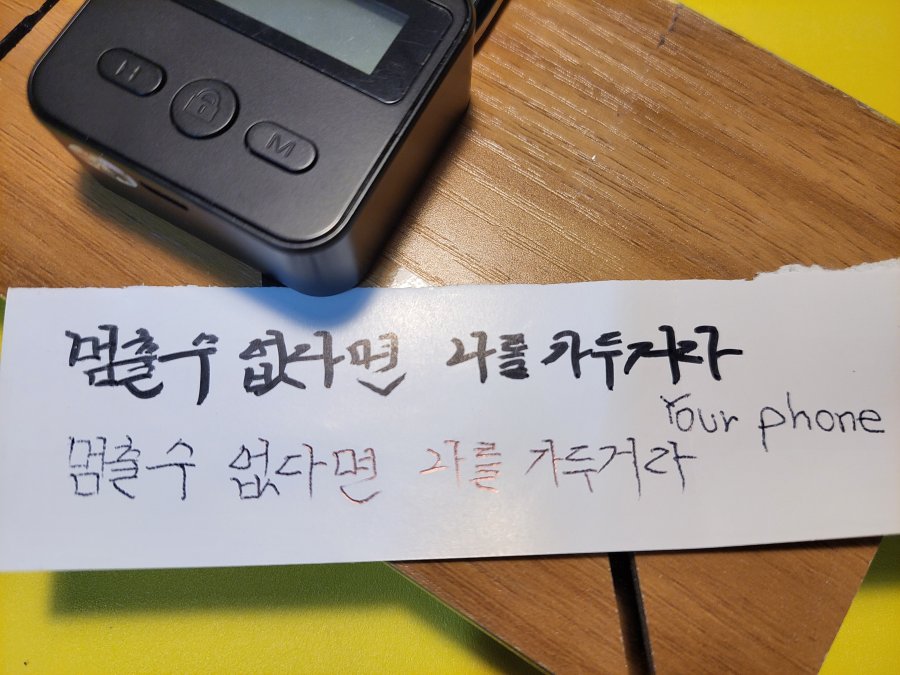 H M
멈출수 없다면 나를 가두거라
Your phone
멈출수 없다면 나를 가두거라